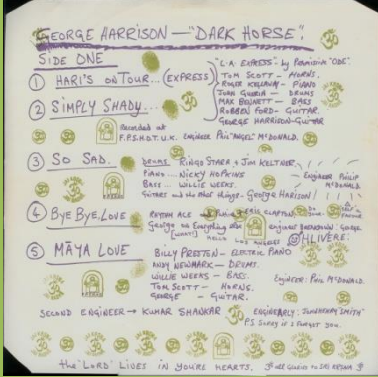 GEORGE HARRISON — "DARK HORSE".
SIDE ONE
① HARI'S ON TOUR... (EXPRESS)
"L.A. EXPRESS" by "ODE".
TOM SCOTT - HORNS.
ROGER KELLAWAY - PIANO
JOHN GUERIN - DRUMS
MAX BENNETT - BASS
ROBBEN FORD - GUITAR.
GEORGE HARRISON - GUITAR
② SIMPLY SHADY...
Recorded at
F.P.S.H.O.T. U.K. Engineer Phil "ANGEL" McDONALD.
③ SO SAD.
DRUMS. RINGO STARR & JIM KELTNER.
PIANO... NICKY HOPKINS
BASS... WILLIE WEEKS.
GUITARS and the other things - George HARISON!
Engineer PHILIP
McDONALD.
④ BYE BYE, LOVE
RHYTHM ACE
ERIC CLAPTON
George on Everything else
HELLO LOS ANGELES
OHLIVERE:
⑤ MĀYA LOVE
BILLY PRESTON - ELECTRIC PIANO
ANDY NEWMARK - DRUMS.
WILLIE WEEKS - BASS.
TOM SCOTT - HORNS.
GEORGE - GUITAR.
Engineer: PHIL McDONALD.
SECOND ENGINEER → KUMAR SHANKAR
P.S. Sorry if I forgot you.
the 'LORD' LIVES IN YOURE HEARTS.
all Glories to SRI KRSNA